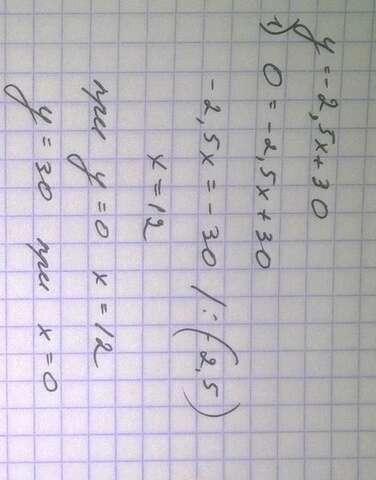 y = -2,5x+30
1) 0 = -2,5x+30
-2,5x = -30 /:(-2,5)
x=12
при y=0 x=12
y=30 при x=0